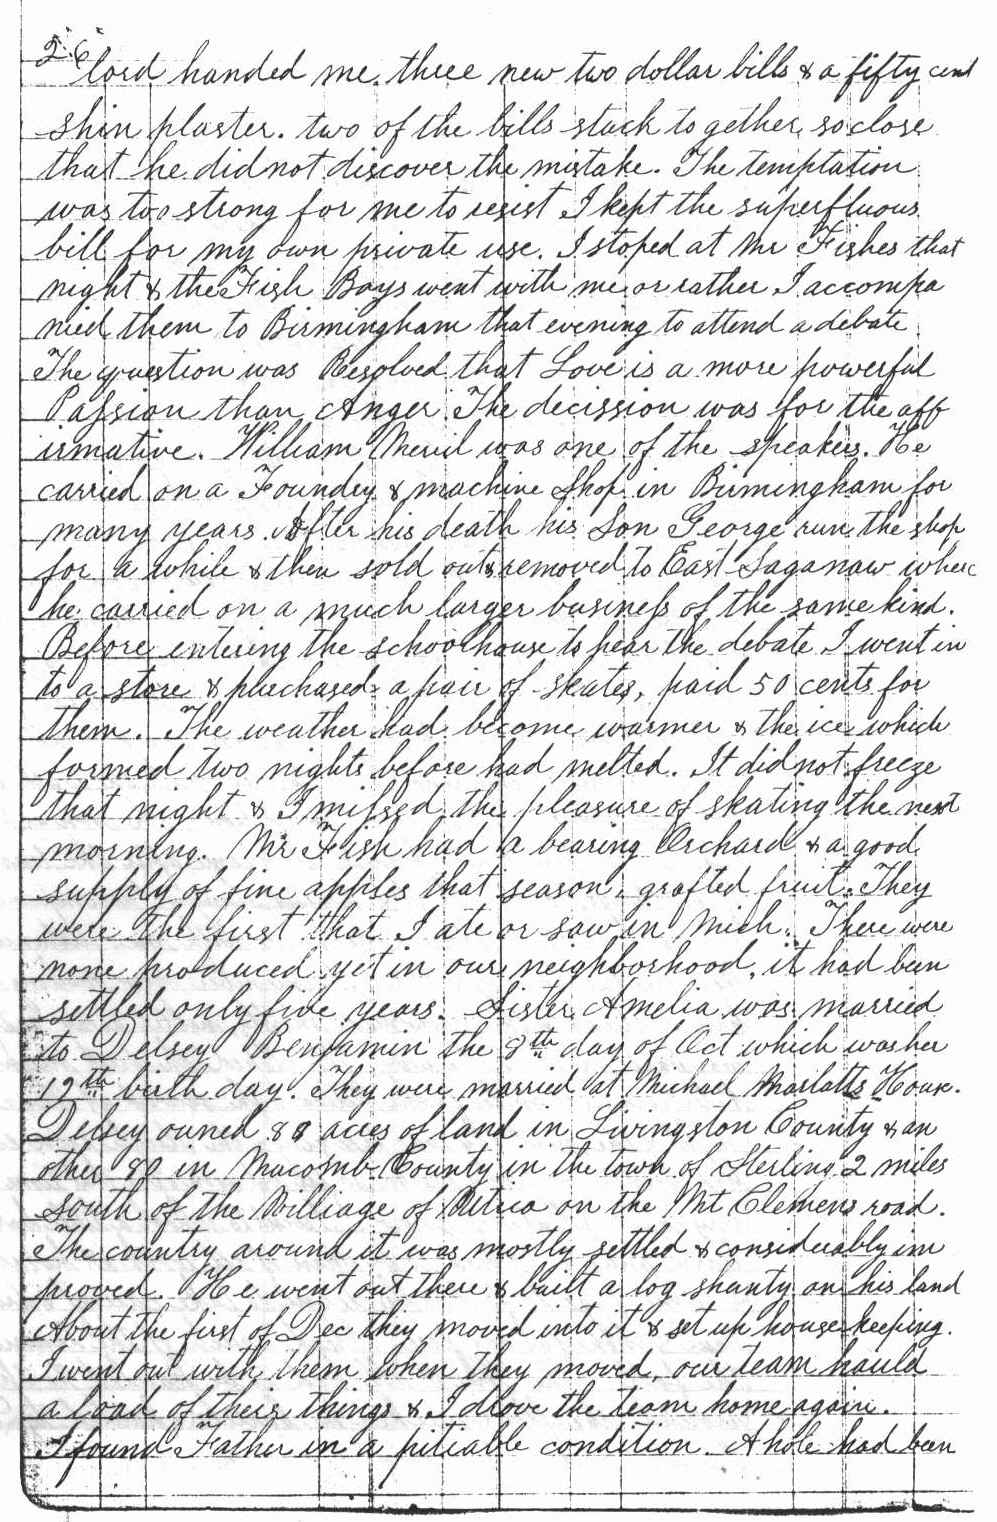 26
lord handed me three new two dollar bills & a fifty cent
shin plaster. two of the bills stuck to gether so close
that he did not discover the mistake. The temptation
was too strong for me to resist I kept the superfluous
bill for my own private use. I stoped at Mr Fishes that
night & the Fish Boys went with me or rather I accompa
nied them to Birmingham that evening to attend a debate
The question was Resolved that Love is a more powerful
Passion than Anger. The decission was for the aff
irmative. William Meril was one of the speakers. He
carried on a Foundry & machine Shop in Birmingham for
many years. After his death his Son George run the shop
for a while & then sold out & removed to East Saganaw where
he carried on a much larger business of the same kind.
Before entering the schoolhouse to hear the debate I went in
to a store & purchased a pair of skates, paid 50 cents for
them. The weather had become warmer & the ice which
formed two nights before had melted. It did not freeze
that night & I missed the pleasure of skating the next
morning. Mr Fish had a bearing Orchard & a good
supply of fine apples that season, grafted fruit. They
were the first that I ate or saw in Mich. There were
none produced yet in our neighborhood, it had been
settled only five years. Sister Amelia was married
to Delsey Benjamin the 8th day of Oct which was her
19th birth day. They were married at Michael Marlatts House.
Delsey owned 80 acres of land in Livingston County & an
other 80 in Macomb County in the town of Sterling 2 miles
south of the Villiage of Utica on the Mt Clemens road.
The country around it was mostly settled & considerably im
proved. He went out there & built a log shanty on his land
About the first of Dec they moved into it & set up house keeping.
I went out with them when they moved, our team hauld
a load of their things & I drove the team home again.
I found Father in a pitiable condition. A hole had been